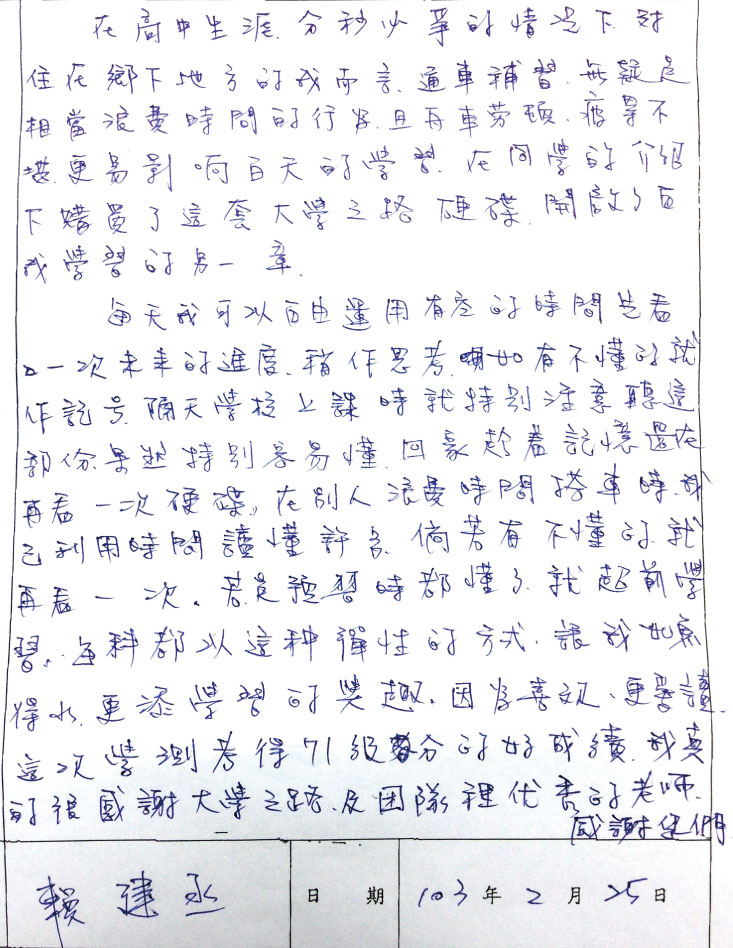 在高中生涯、分秒必爭的情況下、對
住在鄉下地方的我而言、通車補習、無疑是
相當浪費時間的行為、且再車勞頓、疲累不
堪、更易影响白天的學習、在同學的介紹
下購買了這套大學之路硬碟、開啟了自
我學習的另一章、
每天我可以自由運用有空的時間先看
一次未來的進度、稍作思考、如有不懂的就
作記号、隔天學校上課時就特別注意聽這
部份果然特別容易懂、回家趁著記憶還在
再看一次硬碟。在別人浪費時間搭車時、我
已利用時間讀懂許多、倘若有不懂的、就
再看一次。若是預習時都懂了、就超前學
習。每科都以這种彈性的方式、讓我如魚
得水、更添學習的樂趣。因為喜歡、更要讀、
這次學測考得71級分的好成績、我真
的很感謝大學之路、及团隊裡优秀的老師、
感謝您們
賴建丞 日期 103年2月25日